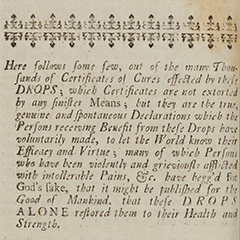 Here follows some few, out of the many Thou-
sands of Certificates of Cures effected by these
DROPS; which Certificates are not extorted
by any sinister Means; but they are the true,
genuine and spontaneous Declarations which the
Persons receiving Benefit from these Drops have
voluntarily made, to let the World know their
Efficacy and Virtue; many of which Persons
who have been violently and grievously afflicted
with intollerable Pains, &c. have begg'd for
God's sake, that it might be published for the
Good of Mankind, that these DROPS
ALONE restored them to their Health and
Strength.